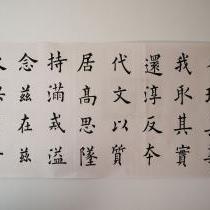 我取其實
還淳反本
代文以質
居高思墜
持滿戒溢
念茲在茲